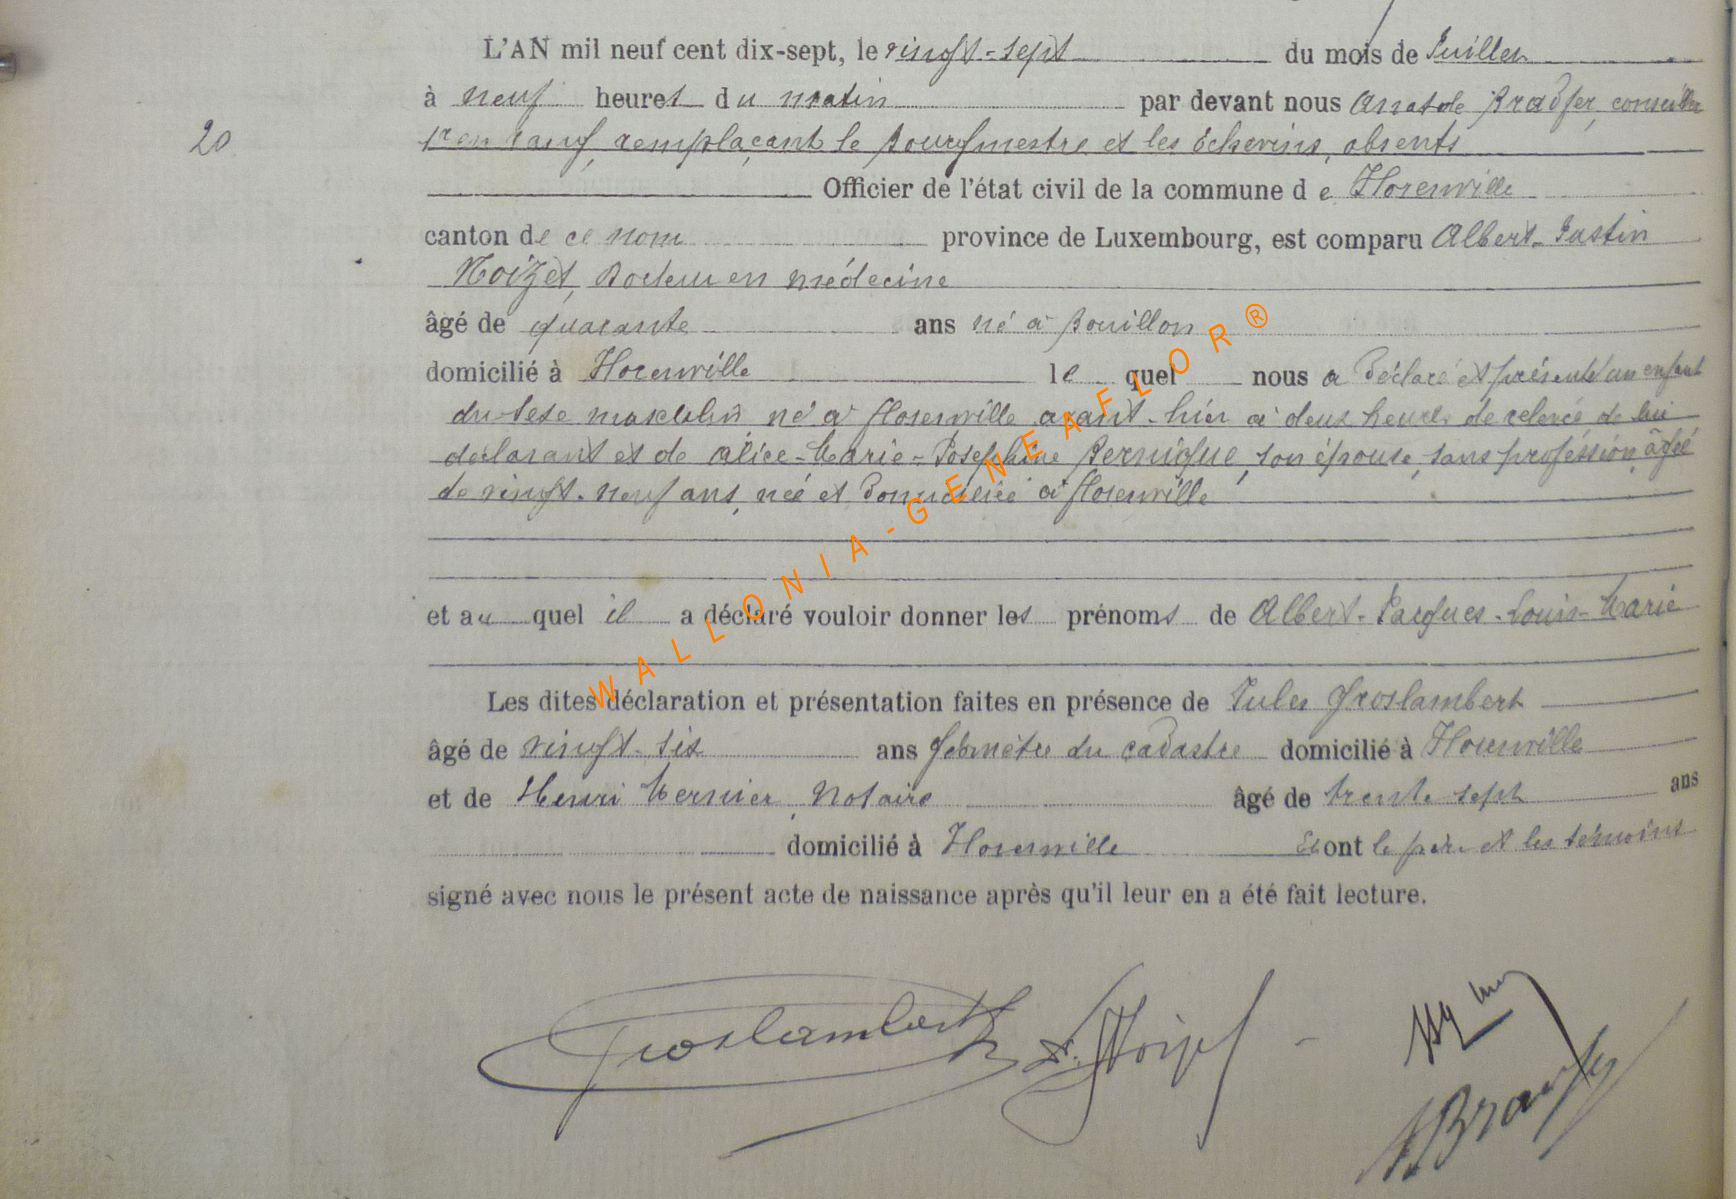 L'AN mil neuf cent dix-sept, le vingt-sept du mois de Juillet
à neuf heures du matin par devant nous Anatole Bradfer, conseiller
20
1er en rang, remplaçant le Bourgmestre et les Echevins, absents
Officier de l'état civil de la commune de Florenville
canton de ce nom province de Luxembourg, est comparu Albert-Justin
Noizet, Docteur en médecine
âgé de quarante ans né à Bouillon
domicilié à Florenville lequel nous a déclaré et présenté un enfant
du sexe masculin né à Florenville avant-hier à deux heures de relevée de lui
déclarant et de Alice-Marie-Joséphine Pernigue, son épouse, sans profession, âgée
de vingt-neuf ans, née et domiciliée à Florenville
et au quel il a déclaré vouloir donner les prénoms de Albert-Jacques-Louis-Marie
Les dites déclaration et présentation faites en présence de Jules Groslambert
âgé de vingt-six ans géomètre du cadastre domicilié à Florenville
et de Henri Mernier, Notaire âgé de trente sept ans
domicilié à Florenville Et ont le père et les témoins
signé avec nous le présent acte de naissance après qu'il leur en a été fait lecture.
WALLONIA-GENEAFLOR®
Groslambert A. Noizet
A. Bradfer